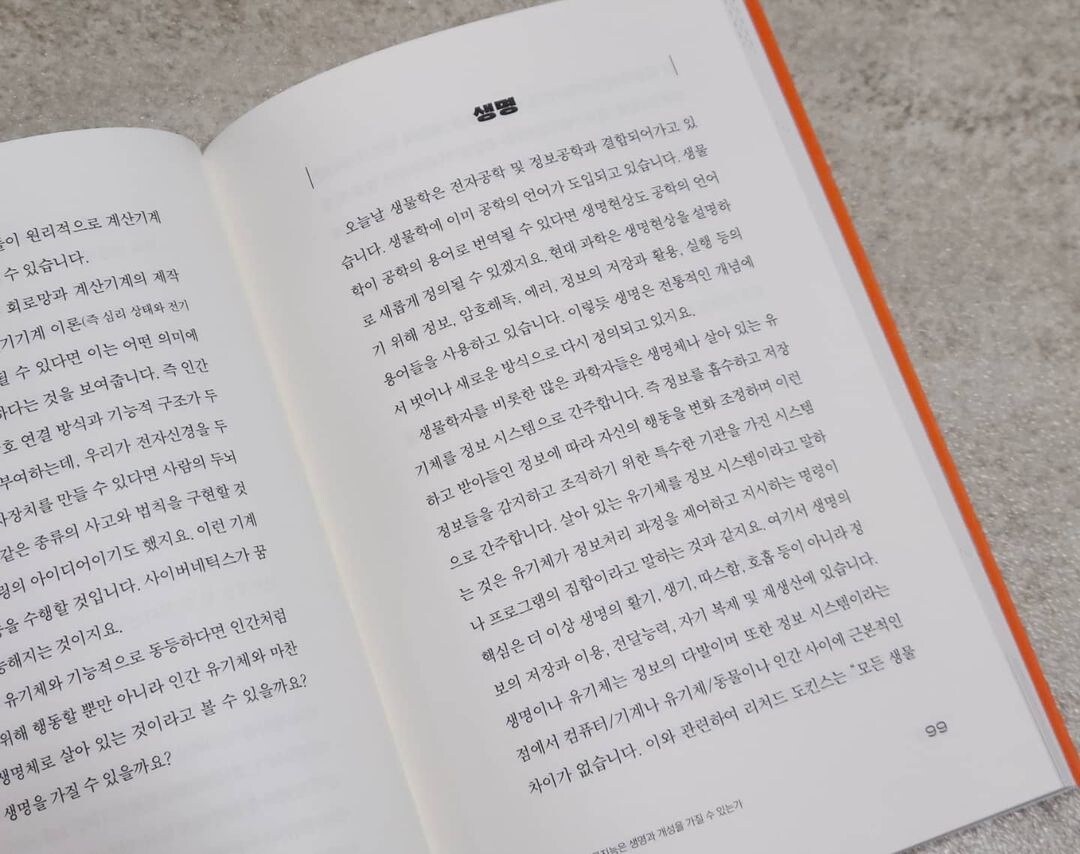 이 원리적으로 계산기계
수 있습니다.
회로망과 계산기계의 제작
기기계 이론(즉 심리 상태와 전기
될 수 있다면 이는 어떤 의미에
하다는 것을 보여줍니다. 즉 인간
호 연결 방식과 기능적 구조가 두
부여하는데, 우리가 전자신경을 두
장치를 만들 수 있다면 사람의 두뇌
같은 종류의 사고와 법칙을 구현할 것
링의 아이디어이기도 했지요. 이런 기계
을 수행할 것입니다. 사이버네틱스가 꿈
능해지는 것이지요.
유기체와 기능적으로 동등하다면 인간처럼
위해 행동할 뿐만 아니라 인간 유기체와 마찬
생명체로 살아 있는 것이라고 볼 수 있을까요?
생명을 가질 수 있을까요?
생명
오늘날 생물학은 전자공학 및 정보공학과 결합되어가고 있
습니다. 생물학에 이미 공학의 언어가 도입되고 있습니다. 생물
학이 공학의 용어로 번역될 수 있다면 생명현상도 공학의 언어
로 새롭게 정의될 수 있겠지요. 현대 과학은 생명현상을 설명하
기 위해 정보, 암호해독, 에러, 정보의 저장과 활용, 실행 등의
용어들을 사용하고 있습니다. 이렇듯 생명은 전통적인 개념에
서 벗어나 새로운 방식으로 다시 정의되고 있지요.
생물학자를 비롯한 많은 과학자들은 생명체나 살아 있는 유
기체를 정보 시스템으로 간주합니다. 즉 정보를 흡수하고 저장
하고 받아들인 정보에 따라 자신의 행동을 변화 조정하며 이런
정보들을 감지하고 조직하기 위한 특수한 기관을 가진 시스템
으로 간주합니다. 살아 있는 유기체를 정보 시스템이라고 말하
는 것은 유기체가 정보처리 과정을 제어하고 지시하는 명령이
나 프로그램의 집합이라고 말하는 것과 같지요. 여기서 생명의
핵심은 더 이상 생명의 활기, 생기, 따스함, 호흡 등이 아니라 정
보의 저장과 이용, 전달능력, 자기 복제 및 재생산에 있습니다.
생명이나 유기체는 정보의 다발이며 또한 정보 시스템이라는
점에서 컴퓨터/기계나 유기체/동물이나 인간 사이에 근본적인
차이가 없습니다. 이와 관련하여 리처드 도킨스는 “모든 생물
생명과 개성을 가질 수 있는가
99